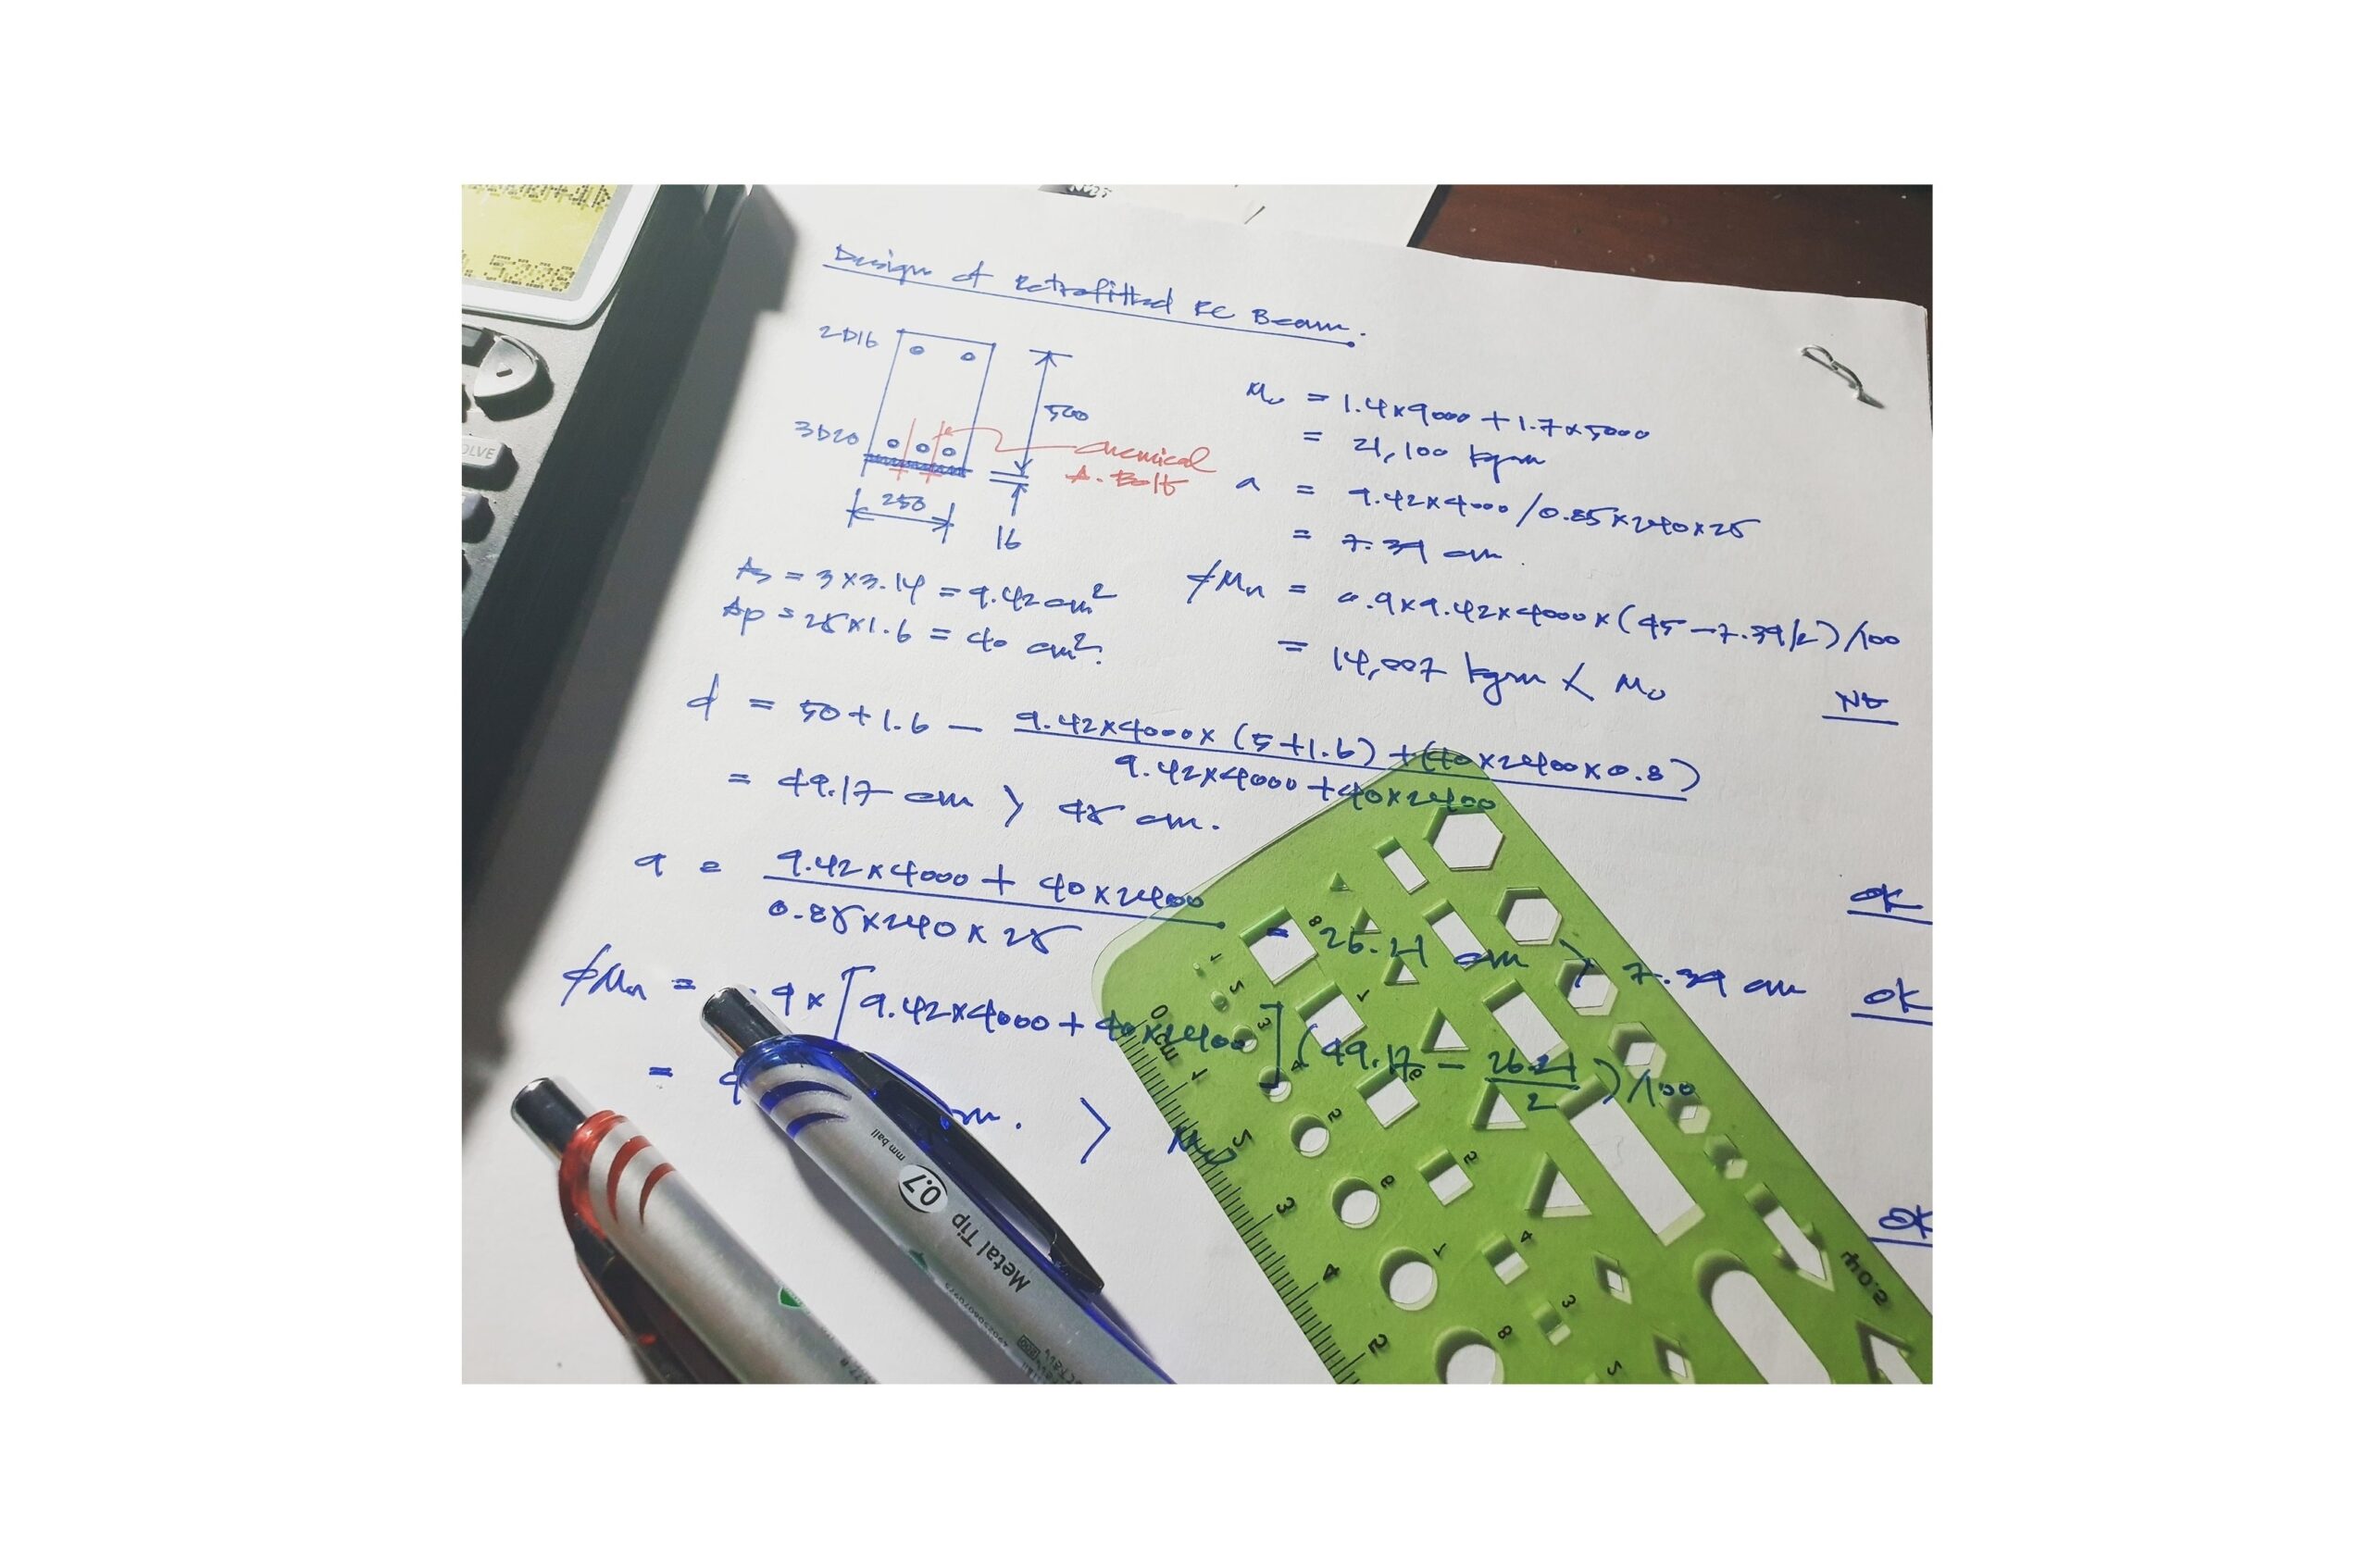 5228
OLVE
Design of Retrofitted RC Beam.
2D16
500
3D20
Chemical
A. Bolt
250
16
Mu = 1.4x9000 + 1.7x5000
= 21,100 kgm
a = 9.42x4000/0.85x240x25
= 7.39 cm.
As = 3x3.14 = 9.42 cm²
Ap = 25x1.6 = 40 cm².
φMn = 0.9x9.42x4000x(45-7.39/2)/100
= 14,007 kgm < Mu
NG
d = 50+1.6 - 9.42x4000x(5+1.6)+(40x2400x0.8)
9.42x4000+40x2400
= 49.17 cm > 45 cm.
OK
a = 9.42x4000 + 40x2400
0.85x240x25
= 26.21 cm > 7.39 cm
OK
φMn = .9x[9.42x4000+40x2400](49.17 - 26.21/2)/100
= 9 m. > Mu
OK
mm ball
0.7
Metal Tip